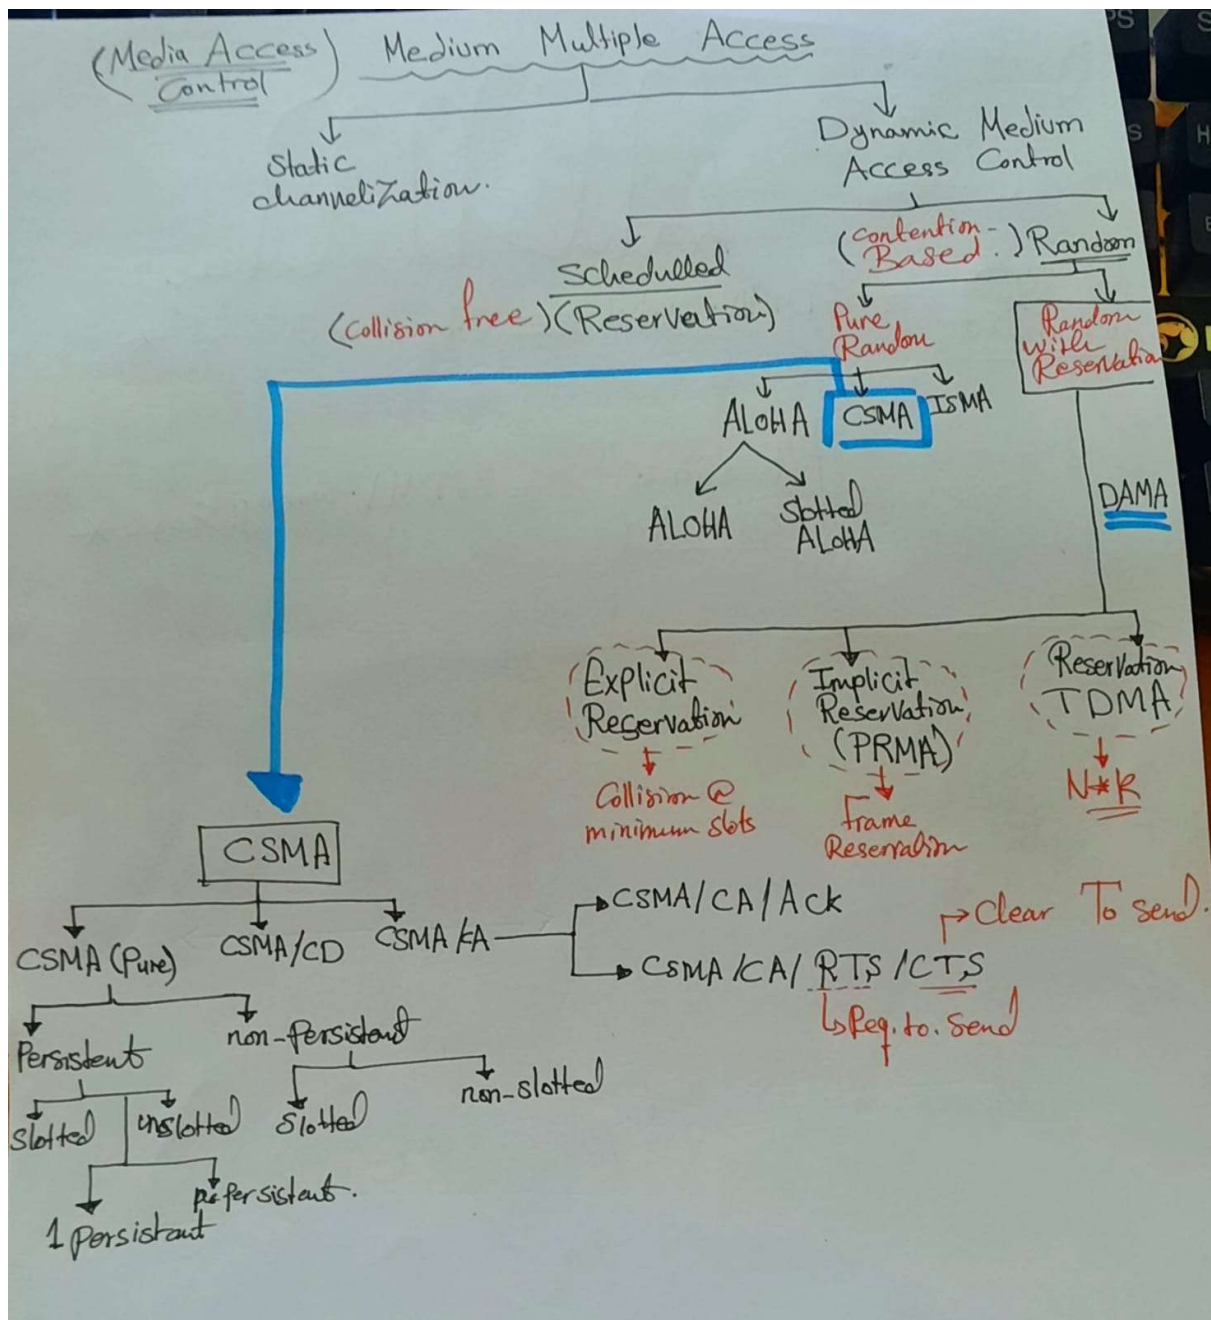 (Media Access Control) Medium Multiple Access
Static
channelization.
Dynamic Medium
Access Control
Schedulled
(Collision free) (Reservation)
(Contention-
Based.) Random
Pure
Random
Random
with
Reservation
ALOHA
CSMA
ISMA
ALOHA
Slotted
ALOHA
DAMA
Explicit
Reservation
Collision @
minimum slots
Implicit
Reservation
(PRMA)
Frame
Reservation
Reservation
TDMA
N*K
CSMA
CSMA (Pure)
CSMA/CD
CSMA/CA
CSMA/CA/Ack
CSMA/CA/RTS/CTS
Clear To send.
Req. to. Send
Persistent
non-Persistent
Slotted
unslotted
Slotted
non-slotted
1 Persistant
persistent.